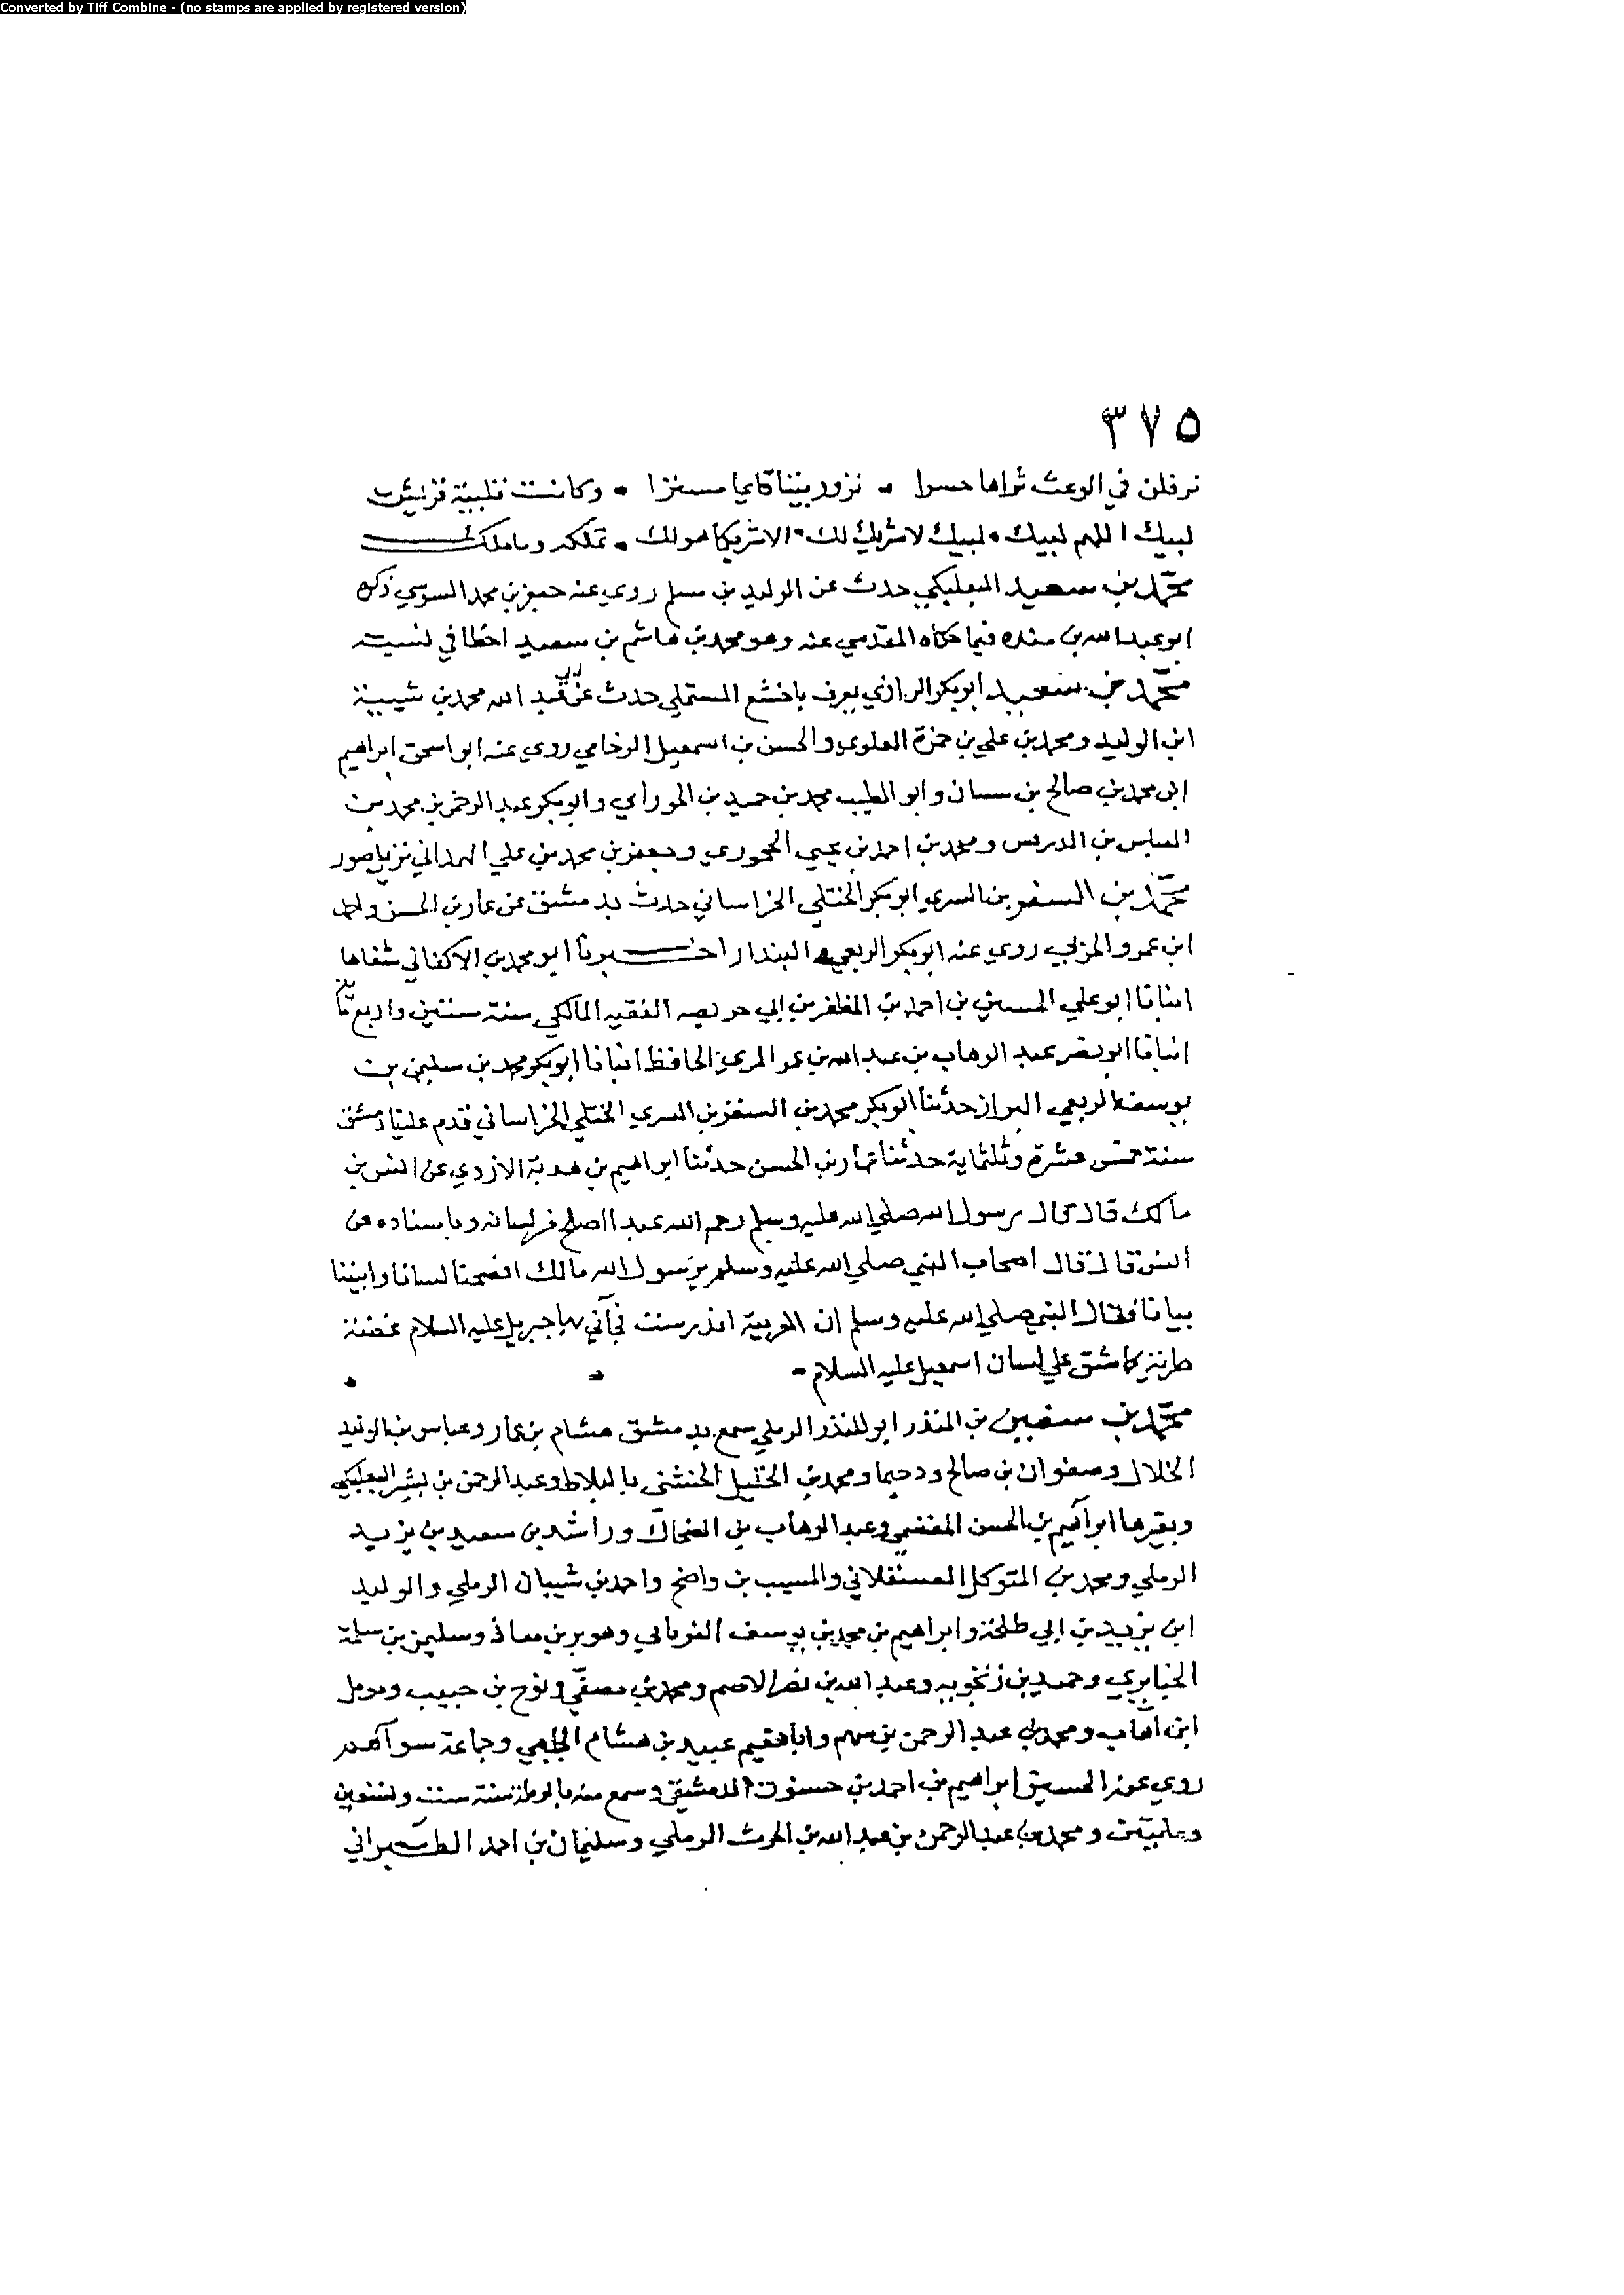 Converted by Tiff Combine - (no stamps are applied by registered version)
٣٧٥
نرفلن في الوعث تراها حسرا نزور بيتا قايما مستنزا وكانت تلبية قريش
لبيك اللهم لبيك لبيك لا شريك لك الا شريكا هو لك تملكه وما ملك
محمد بن سعيد البعلبكي حدث عن الوليد بن مسلم روي عنه جعفر بن محمد السوسي ذكره
ابو عبد الله بن منده فيما حكاه المقدسي عنه وهو محمد بن هاشم بن سعيد اخطا في نسبته
محمد بن سعيد ابو بكر الرازي يعرف باخشع المستملي حدث عن عبد الله محمد بن شيبة
ابن الوليد ومحمد بن علي بن حمزة العلوي والحسن بن اسمعيل الرخامي روي عنه ابو اسحق ابراهيم
ابن محمد بن صالح بن سنان وابو الطيب محمد بن حميد بن الحوراني وابو بكر عبد الرحمن بن محمد بن
العباس بن الدرپس ومحمد بن احمد بن يحيي الحجوري وجعفر بن محمد بن علي الهمداني نزيل صور
محمد بن السفر بن السري ابو بكر الختلي الخراساني حدث بدمشق عن عمار بن الحسن واحمد
ابن عمرو المزني روي عنه ابو بكر الربعي البندار اخبرنا ابو محمد بن الاكفاني شفاها
انبانا ابو علي الحسين بن احمد بن المظفر بن ابي حريصه الفقيه المالكي سنة ستين واربع مائة
انبانا ابو نصر عبد الوهاب بن عبد الله بن عمر المري الحافظ انبانا ابو بكر محمد بن سليمن بن
يوسف الربعي البزاز حدثنا ابو بكر محمد بن السفر بن السري الختلي الخراساني قدم علينا دمشق
سنة خمس عشرة وثلثماية حدثنا عمار بن الحسن حدثنا ابراهيم بن هدبة الازدي عن انس بن
مالك قال قال رسول الله صلي الله عليه وسلم رحم الله عبدا اصلح من لسانه وباسناده عن
انس قال قال اصحاب النبي صلي الله عليه وسلم يرسول الله مالك افصحنا لسانا وابيننا
بيانا فقال النبي صلي الله عليه وسلم ان العربية اندرست فجآني بها جبريل عليه السلام غضة
طرية كما شق علي لسان اسمعيل عليه السلام
محمد بن سفين بن المنذر ابو المنذر الرملي سمع بدمشق هشام بن عمار وعباس بن الوليد
الخلال وصفوان بن صالح ودحيما ومحمد بن الخليل الخشني بالبلاط وعبد الرحمن بن بشر البعلبكي
وبغيرها ابراهيم بن الحسن المقسمي وعبد الوهاب بن الضحاك وراشد بن سعيد بن يزيد
الرملي ومحمد بن المتوكل العسقلاني والمسيب بن واضح واحمد بن شيبان الرملي والوليد
ابن يزيد بن ابي طلحة وابراهيم بن محمد بن يوسف الفريابي وهوبر بن معاذ وسليمن بن سلمة
الخبايري وحميد بن زنجويه وعبد الله بن نصر الاصم ومحمد بن مصفي ونوح بن حبيب ومومل
ابن اهاب ومحمد بن عبد الرحمن بن سهم وابا نعيم عبيد بن هشام الحلبي وجماعة سواهم
روي عنه الحسين ابراهيم بن احمد بن حسنون الدمشقي وسمع منه بالرملة سنة ست وتسعين
ومايتين ومحمد بن عبد الرحمن بن عبد الله بن الحرث الرملي وسليمان بن احمد الطبراني